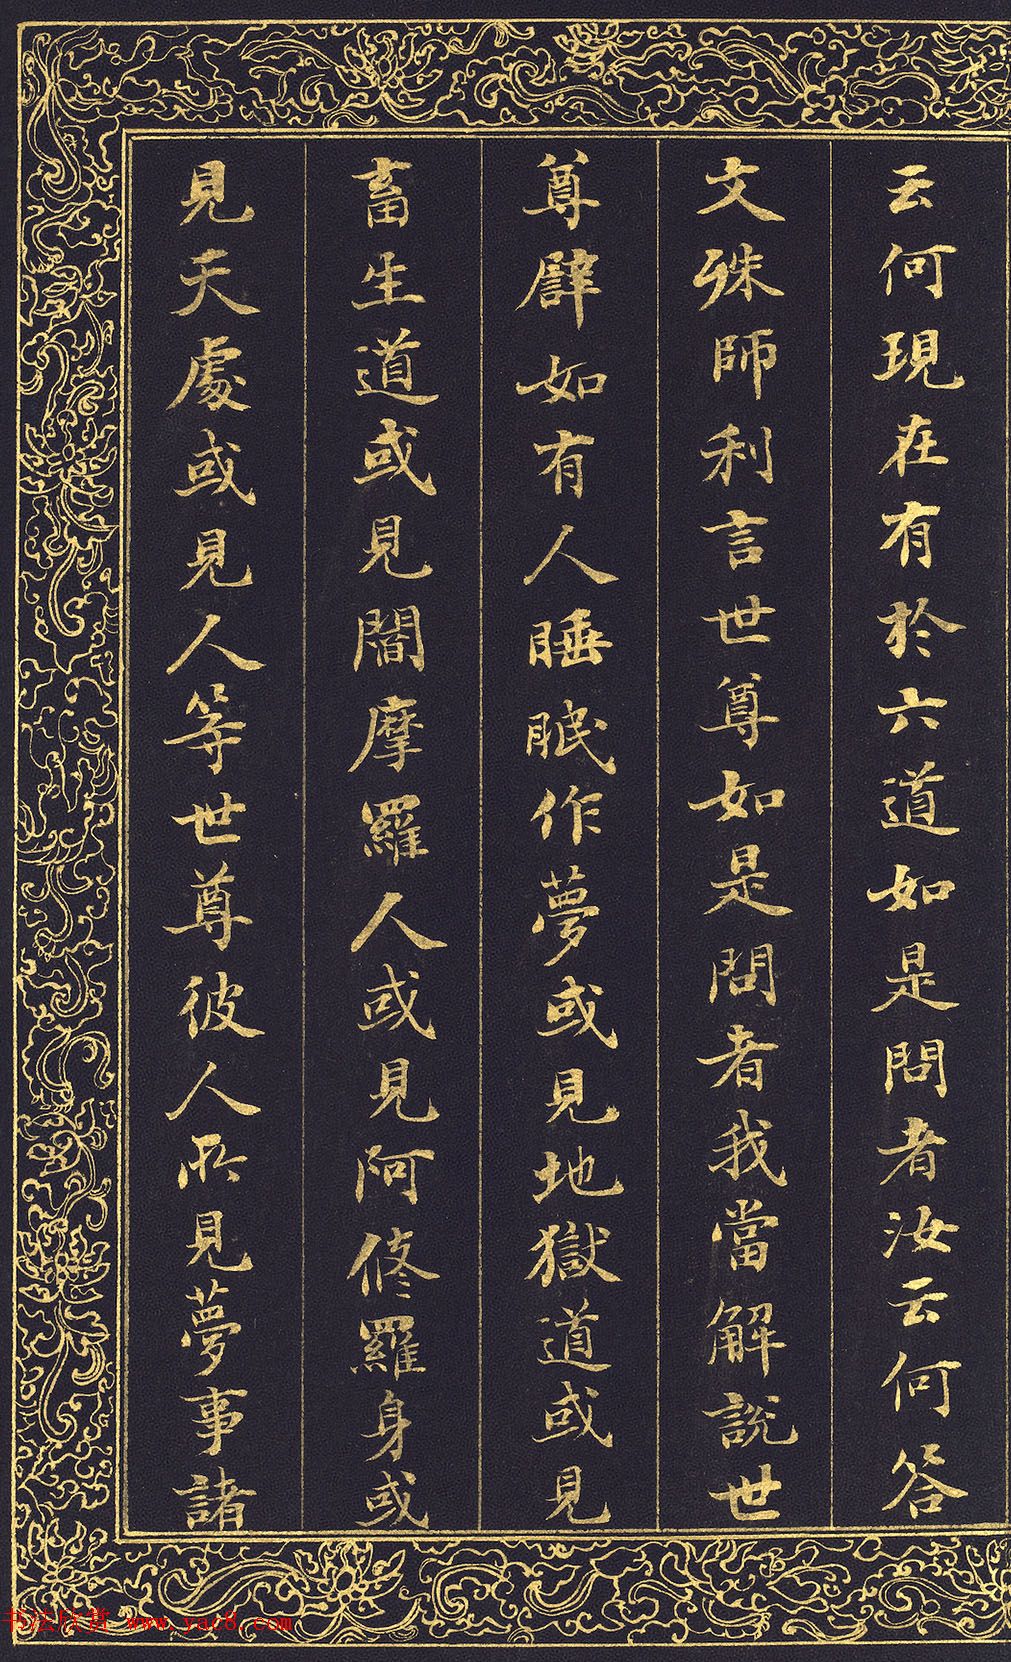 云何現在有於六道如是問者汝云何答
文殊師利言世尊如是問者我當解說世
尊辟如有人睡眠作夢或見地獄道或見
畜生道或見閻摩羅人或見阿脩羅身或
見天處或見人等世尊彼人所見夢事諸
书法欣赏 www.yac8.com